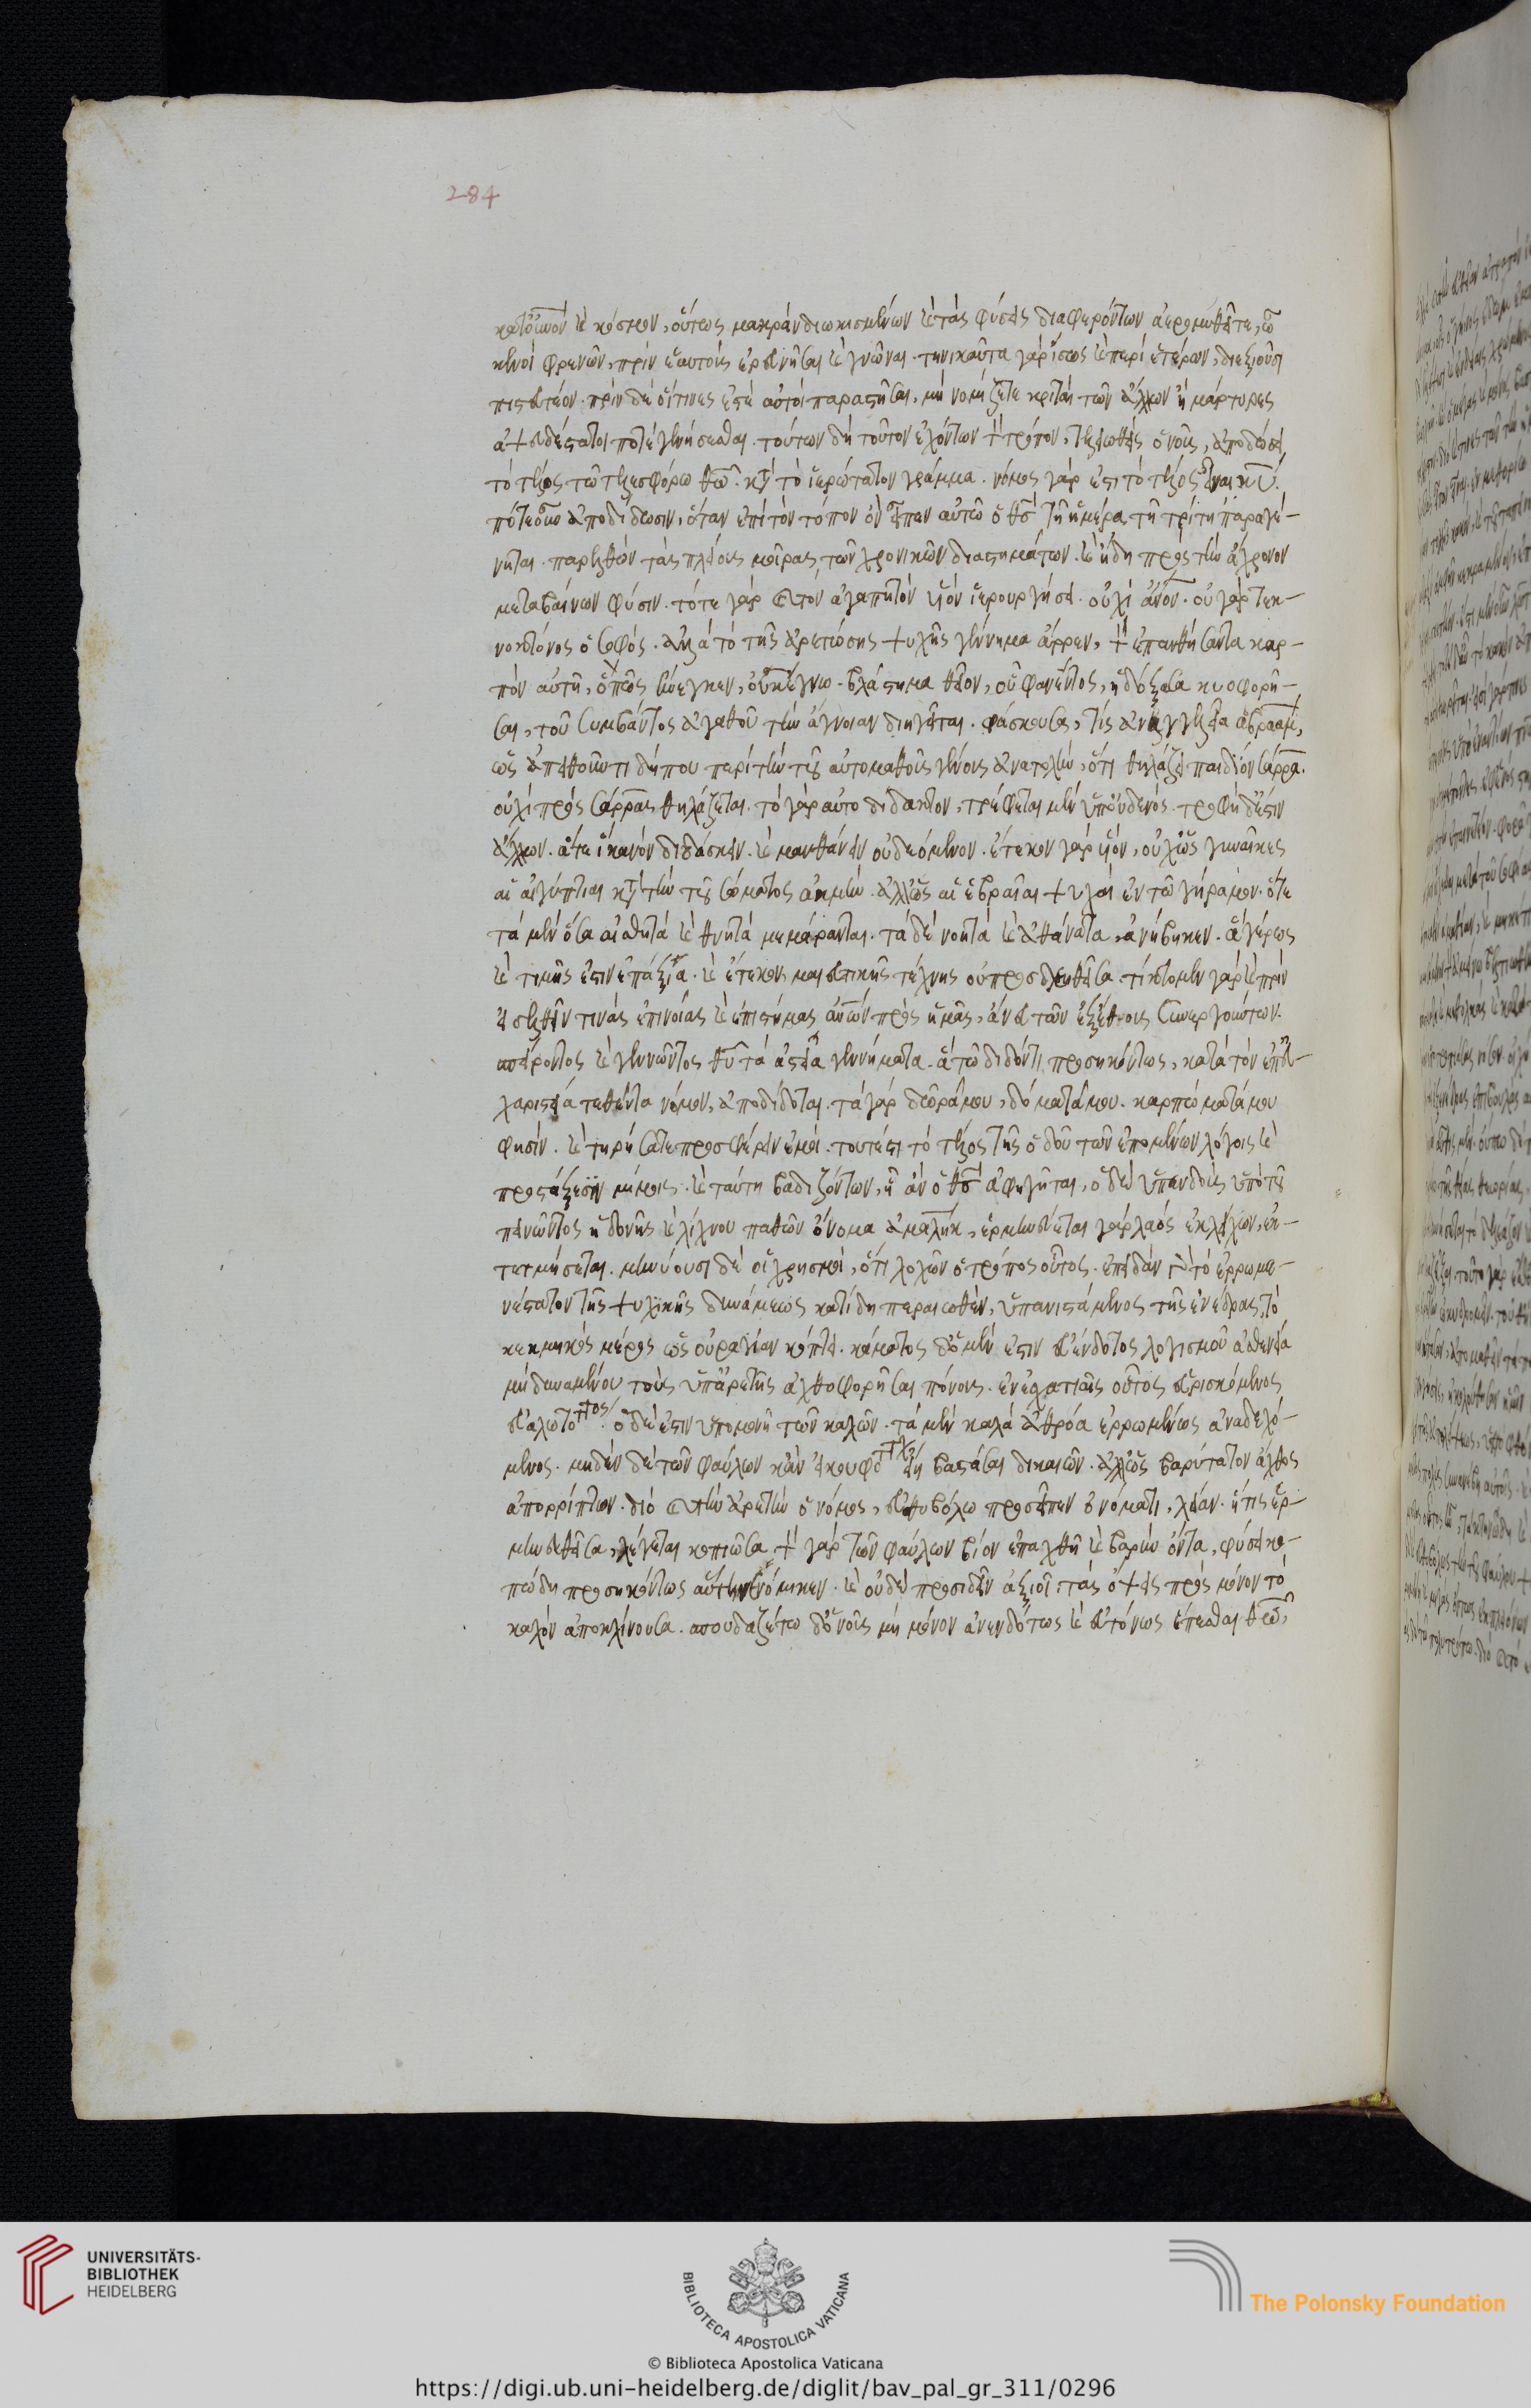 κατ' οὐ̅ν̅ο̅ν̅ καὶ κόσμον, οὕτως μακρὰν διωκισμένων καὶ τὰς φύσεις διαφερόντων ἀερομυθεῖτε, ὦ
κενοὶ φρενῶν, πρὶν ἑαυτοὺς ἐρευνῆσαι καὶ γνῶναι. τηνικαῦτα γὰρ ἴσως καὶ περὶ ἑτέρων, διεξιοῦσι
πιστευτέον. πρὶν δὲ οἵτινες ἐστὲ αὐτοὶ παραστῆσαι, μὴ νομίζετε κριταὶ τῶν ἄλλων ἢ μάρτυρες
ἀψευδέστατοι ποτὲ γενήσεσθαι. τούτων δὴ τοῦτον ἐχόντων τὸν τρόπον, τελειωθεὶς ὁ νοῦς, ἀποδώσει
τὸ τέλος τῶ τελεσφόρω θῶ. κατὰ τὸ ἱερώτατον γράμμα. νόμος γάρ ἐστι τὸ τέλος εἶναι κυ.
πότε οὖν ἀποδίδωσιν, ὅταν ἐπὶ τὸν τόπον ὃν εἶπεν αὐτῶ ὁ θς τῆ ἡμέρα τῆ τρίτη παραγέ-
νηται. παρελθὼν τὰς πλείους μοίρας τῶν χρονικῶν διαστημάτων. καὶ ἤδη πρὸς τὴν ἄχρονον
μεταβαίνων φύσιν. τότε γὰρ καὶ τὸν ἀγαπητὸν υἱὸν ἱερουργήσει. οὐχὶ ἄνον. οὐ γὰρ τεκ-
νοκτόνος ὁ σοφός. ἀλλὰ τὸ τῆς ἀρετώσης ψυχῆς γέννημα ἄρρεν, τὸν ἐπανθήσαντα καρ-
πὸν αὐτῆ, ὃν πῶς ἤνεγκεν, οὐκ ἔγνω. βλάστημα θεῖον, οὗ φανέντος, ἡ δόξασα κυοφορῆ-
σαι, τοῦ συμβάντος ἀγαθοῦ τὴν ἄγνοιαν διηγεῖται. φάσκουσα, τίς ἀναγγελεῖ ἁβραάμ,
ὡς ἀπειθοῦντι δήπου περὶ τὴν τοῦ αὐτομαθοῦς γένους ἀνατολὴν, ὅτι θηλάζει παιδίον σάρρα.
οὐχὶ πρὸς σάρρας θηλάζεται. τὸ γὰρ αὐτοδίδακτον, τρέφεται μὲν ὑπ' οὐδενός. τροφὴ δ' ἐστὶν
ἄλλων. ἅτε ἱκανὸν διδάσκειν. καὶ μανθάνειν οὐ δεόμενον. ἔτεκον γὰρ υἱόν, οὐχ ὡς γυναῖκες
αἱ αἰγύπτιαι κατὰ τὴν τοῦ σώματος ἀκμὴν. ἀλλ' ὡς αἱ ἑβραῖαι ψυχαὶ ἐν τῶ γήρα μου. ὅτε
τὰ μὲν ὅσα αἰσθητὰ καὶ θνητὰ μεμάρανται. τὰ δὲ νοητὰ καὶ ἀθάνατα, ἀνήβηκεν. ἃ γέρως
καὶ τιμῆς ἐστιν ἐπάξια. καὶ ἔτεκον, μαιευτικῆς τέχνης οὐ προσδεηθεῖσα. τίκτομεν γὰρ καὶ πρὶν
εἰσελθεῖν τινὰς ἐπινοίας καὶ ἐπιστήμας ἀνῶν πρὸς ἡμᾶς, ἄνευ τῶν ἐξ ἔθους συνεργούντων.
σπείροντος καὶ γεννῶντος θυ τὰ ἀστεῖα γεννήματα. ἃ τῶ διδόντι προσηκόντως, κατὰ τὸν ἐπ' εὐ-
χαριστεία τεθέντα νόμον, ἀποδίδοται. τὰ γὰρ δῶρά μου, δόματά μου. καρπώματά μου
φησίν. καὶ τηρήσατε προσφέρειν ἐμοί. τουτέστι τὸ τέλος τῆς ὁδοῦ τῶν ἑπομένων λόγοις καὶ
προστάξεσιν νόμοις. καὶ ταύτη βαδιζόντων, ἧ ἂν ὁ θς ἀφηγῆται, ὁ δὲ ὑπενδοὺς ὑπὸ τοῦ
πεινῶντος ἡδονῆς καὶ λίχνου παθῶν ὄνομα ἀμαλὴκ, ἑρμηνεύεται γὰρ λαὸς ἐκλείχων, ἐκ-
τετμήσεται. μηνύουσι δὲ οἱ χρησμοί, ὅτι λοχῶν ὁ τρόπος οὗτος. ἐπειδὰν τὸ ἐρρωμε-
νέστατον τῆς ψυχικῆς δυνάμεως κατίδη περαιωθὲν, ὑπανιστάμενος τῆς ἐνέδρας, τὸ
κεκμηκὸς μέρος ὡς οὐραγίαν κόπτει. κάματος δ' ὁ μὲν ἐστιν εὐένδοτος λογισμοῦ ἀσθενεία
μὴ δυναμένου τοὺς ὑπὲρ ἀρετῆς ἀχθοφορῆσαι πόνους. ἐν ἐσχατιαῖς οὗτος εὑρισκόμενος
εὐαλωτότατος. ὁ δέ ἐστιν ὑπομονὴ τῶν καλῶν. τὰ μὲν καλὰ ἀθρόα ἐρρωμένως ἀναδεχό-
μενος. μηδὲν δὲ τῶν φαύλων κἂν εἰ κουφότατον εἴη βαστάσαι δικαιῶν. ἀλλ' ὡς βαρύτατον ἄχθος
ἀπορρίπτων. διὸ καὶ τὴν ἀρετὴν ὁ νόμος, εὐθυβόλω προσεῖπεν ὀνόματι, λείαν. ἥτις ἑρ-
μηνευθεῖσα, λέγεται κοπιῶσα. τὸν γὰρ τῶν φαύλων βίον ἐπαχθῆ καὶ βαρὺν ὄντα, φύσει κο-
πώδη προσηκόντως αὕτη νενόμικεν. καὶ οὐδὲ προσιδεῖν ἀξιοῖ. τὰς ὄψεις πρὸς μόνον τὸ
καλὸν ἀποκλίνουσα. σπουδαζέτω δ' ὁ νοῦς μὴ μόνον ἀνενδότως καὶ εὐτόνως ἕπεσθαι θῶ,
284
UNIVERSITÄTS-
BIBLIOTHEK
HEIDELBERG
BIBLIOTECA APOSTOLICA VATICANA
The Polonsky Foundation
© Biblioteca Apostolica Vaticana
https://digi.ub.uni-heidelberg.de/diglit/bav_pal_gr_311/0296